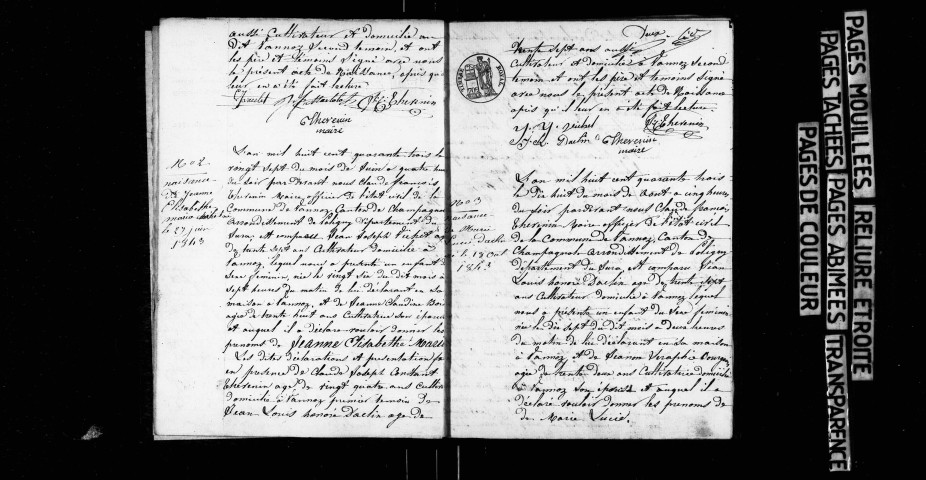 aussi Cultivateur et domicilié au
dit Vannoz Second temoin, et ont
les père et temoins Signé avec nous
le présent acte de Naissance, après que
leur en a été fait lecture
Therenin
Therenin
maire
No 2
naissance
de Jeanne
Elisabethe
maria
le 27 juin
1843
L'an mil huit cent quarante trois le
vingt sept du mois de Juin a quatre heures
du Soir par devant nous Claude francois
Therenin Maire officier de l'état civil de la
Commune de Vannoz, Canton de Champagnole
arrondissement de Poligny Département du
Jura est comparu Jean Joseph
de trente sept ans Cultivateur domicilié a
Vannoz, lequel nous a presenté un enfant du
Sexe feminin, née le vingt six du dit mois a
Sept heures du matin de lui déclarant en sa
maison a Vannoz, et de Jeanne Claudine
agée de trente huit ans Cultivatrice son épouse
et auquel il a déclaré vouloir donner les
prenoms de Jeanne Elisabethe Maria
Les dites déclarations et presentation faites
en presence de Claude Joseph Constant
Therenin agé de vingt quatre ans Cultivateur
domicilié a Vannoz premier temoin de
Jean Louis honoré Daclin agé de
Deux
trente Sept ans aussi
Cultivateur et domicilié a Vannoz Second
temoin et ont les père et temoins Signé
avec nous le présent acte de Naissance
après qu'il leur en a été fait lecture
J. Y.
Therenin
J. L. Daclin
Therenin
maire
No 3
naissance
Marie
Daclin
le 18 Aout
1843
L'an mil huit cent quarante trois
le Dix huit du mois de Aout a cinq heures
du Soir pardevant nous Claude francois
Therenin Maire officier de l'état civil
de la Commune de Vannoz, Canton de
Champagnole arrondissement de Poligny
département du Jura, est comparu Jean
Louis honoré Daclin agé de trente sept
ans Cultivateur domicilié a Vannoz lequel
nous a présenté un enfant du Sexe feminin
née le dix sept du dit mois a deux heures
du matin de lui déclarant en sa maison
a Vannoz, et de Jeanne Séraphie
agée de trente deux ans Cultivatrice domiciliée
a Vannoz son épouse et auquel il a
déclaré vouloir donner les prenoms de
de Marie Lucie.
PAGES MOUILLEES RELIURE ETROITE
PAGES TACHÉES PAGES ABIMÉES TRANSPARENCE
PAGES DE COULEUR